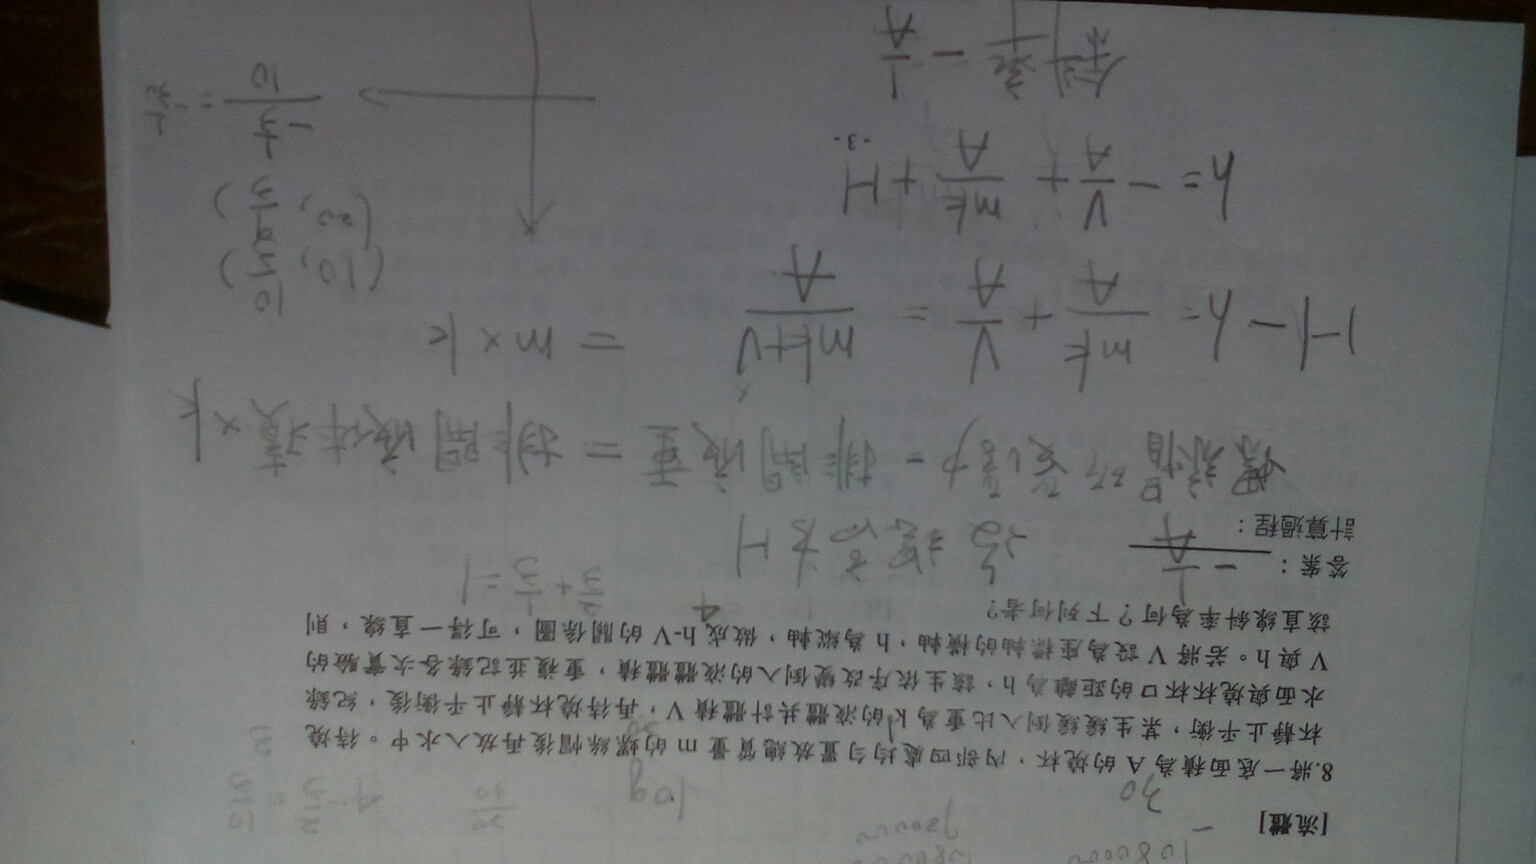 [流體]
8.將一底面積為 A 的燒杯，內部四處均勻置放總質量 m 的螺絲帽後再放入水中。待燒
杯靜止平衡，某生緩緩倒入比重為 k 的液體共計體積 V，再待燒杯靜止平衡後，紀錄
水面與燒杯杯口的距離為 h，該生依序改變倒入的液體體積，重複並記錄各次實驗的
V 與 h。若將 V 設為座標軸的橫軸，h 為縱軸，做成 h-V 的關係圖，可得一直線，則
該直線斜率為何？下列何者？
4
2/3 + 1/3 = 1
答案： -1/A
設 杯高為 H
計算過程：
螺絲帽所受浮力 = 排開液重 = 排開液体積×k
H - h = mk/A + V/A = mk+V/A = m×k
(10, 10/3)
(20, 9/3)
h = - V/A + mk/A + H
-3-
斜率 - 1/A
-1/3 / 10 = -1/30